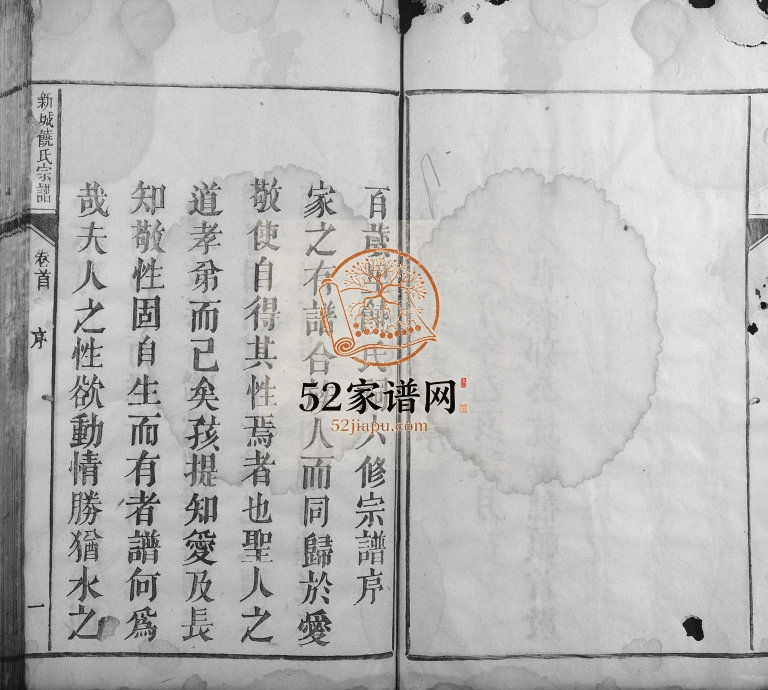 百歲饒氏六修宗譜序
家之有譜合人而同歸於愛
敬使自得其性焉者也聖人之
道孝弟而已矣孩提知愛及長
知敬性固自生而有者譜何爲
哉夫人之性欲動情勝猶水之
新城饒氏宗譜
卷首
序
一
52家谱网
52jiapu.com